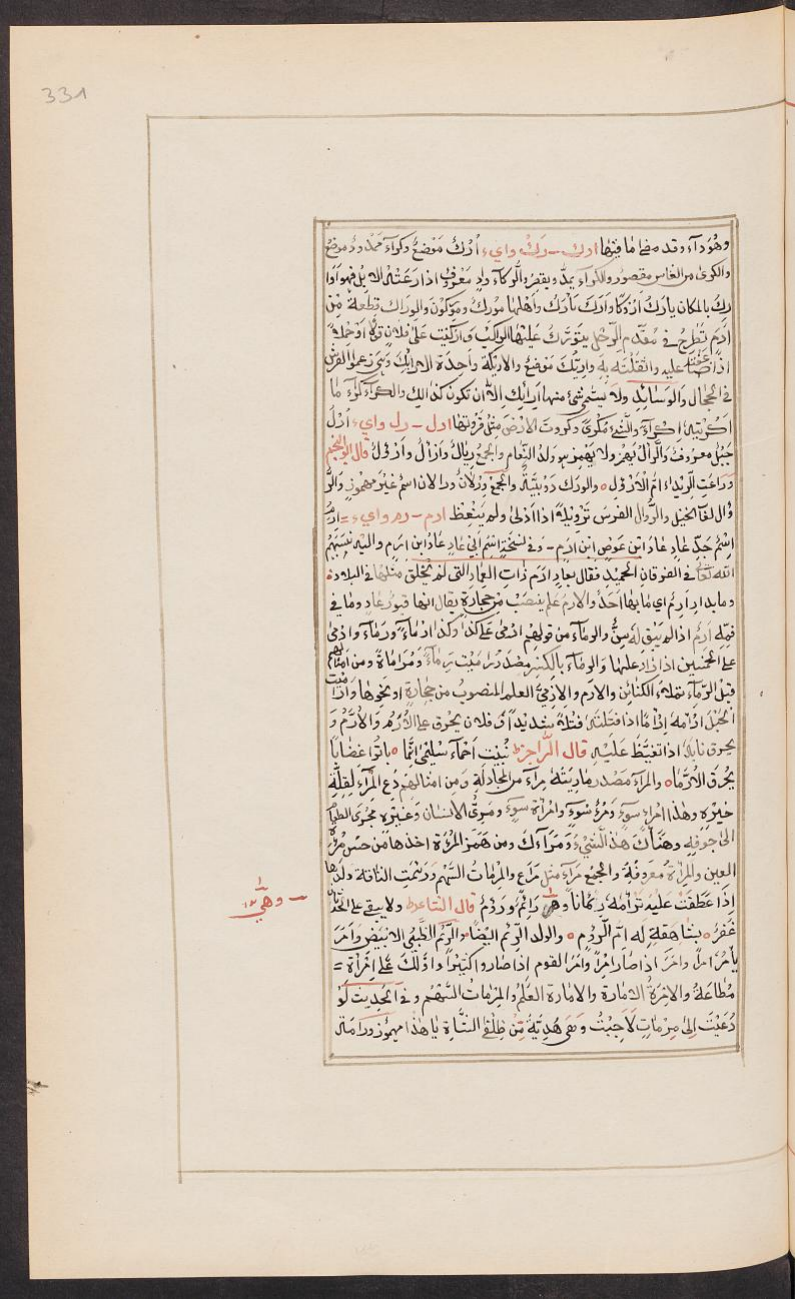 331
وهو داء وقد مضى ما فيها ادك - رك واي ء أرك موضع وكواء ممدود موضع
والكرى من النعاس مقصور والكراء يمد ويقصر والركاء واد معروف اذا رعته الابل فهو اوا
رك بالمكان يأرك أروكا وأرك يأرك واهلها مورك وموركون والوراك قطعة من
أدم تطرح في مقدم الرحل يتورك عليها الراكب واركيت على فلان قولا او حملا
اذا ضاعفته عليه واثقلته به واريك موضع والاريكة واحدة الارائك وهي زعموا الفرش
في الحجال والوسائد ولا يسمى شئ منها اريكة الا ان تكون كذلك والكراء كراء ما
اكريته اكراء والشئ مكرى وكروت الارض مثل قروتها ادل - رل واي ء أرل
جبل معروف والرأل يهمز ولا يهمز ولد النعام والجمع رئال وأرآل وأرؤل قال ابو النجم
وراعت الربداء ام الارؤل ه والورل دويبة والجمع ورلان ورالان اسم غير مهموز والرّ
وال لعاب الخيل ورول الفرس ترويلا اذا ادلى ولم ينعظ ارم - رم واي ء = ارم
اسم جد عاد عاد ابن عوص ابن ارم - وفي نسخة اسم ابي عاد عاد ابن ارم واليه نسبهم
الله تعالى في الفرقان الحميد فقال بعاد ارم ذات العماد التي لم يخلق مثلها في البلاد ه
وما بدار ارم اي ما بها احد والارم علم ينصب من حجارة يقال انها قبور عاد وما في
فمه ارم اذا لم يبق له سن والرماء من قولهم ارمى على كذا وكذا ارماء ورماء وارمى
على الخمسين اذا زاد عليها والرماء بالكسر مصدر راميت رماء ومراماة ومن امثالهم
قبل الرماء تملاء الكنائن والارم والارمي العلم المنصوب من حجارة او نحوها وارمت
الحبل ارمه ارما اذا فتلته فتلا شديدا وفلان يحرق على الارم والارّم و
يحرق نابه اذا تغيظ عليه قال الراجز نبئت احماء سليمى انما ه باتوا غضابا
يحرق الارّما ه والمراء مصدر ماريته مراء من المجادلة ومن امثالهم دع المراء لقلة
خيره وهذا امرء سوء ومرء سوء وامرأة سوء ومرئ الانسان وغيره مجرى الطعام
الى جوفه وهنأك هذا الشيء ومرأك ومن همز المروة اخذها من حسن مرآة
العين والمرآة معروفة والجمع مراء مثل مراع والمرماة السهم ورئمت الناقة ولدها
اذا عطفت عليه ترأمه رئمانا وهي رائم ورؤم قال الشاعر ولا يبقى على الحدثان
غفر ه بشاهقة له ام رؤوم ه والولد الرئم ايضا والرئم الظبي الابيض وامر
يأمر امرا وامر اذا صار اميرا وامر القوم اذا صاروا كثيرا ولك على امرأة =
مطاعة والامرة الامارة والامارة العلم والمرماة السهم وفي الحديث لو
دعيت الى مرماة لاجبت وهي هدية من ظلف الشاة يا هذا مهموز ورامة
- وهي ١٢